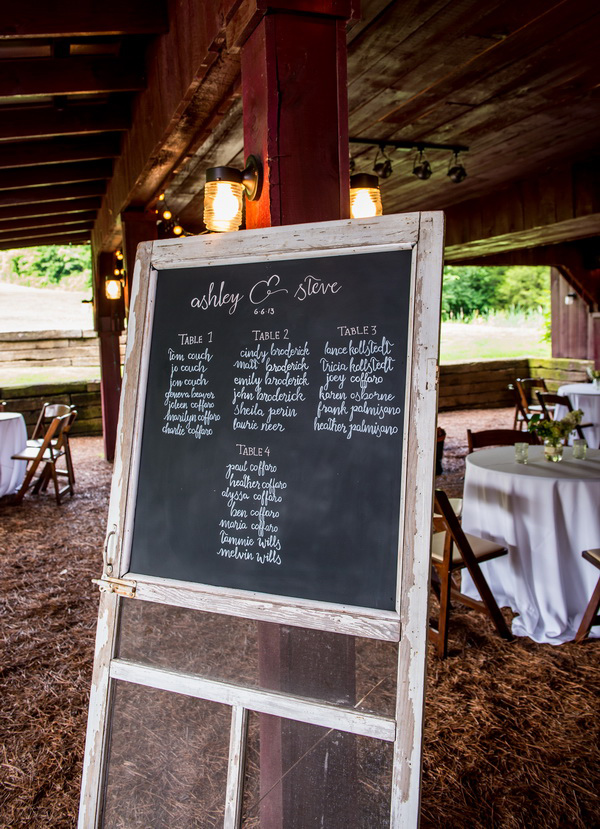 ashley & steve
6.6.13
TABLE 1
tom couch
jo couch
jon couch
geneva beaver
joleen coffaro
marilyn coffaro
charlie coffaro
TABLE 2
cindy broderick
matt broderick
emily broderick
john broderick
sheila perin
laurie neer
TABLE 3
lance kollstedt
tricia kollstedt
joey coffaro
karen osborne
frank palmisano
heather palmisano
TABLE 4
paul coffaro
heather coffaro
alyssa coffaro
ben coffaro
maria coffaro
tammie wills
melvin wills